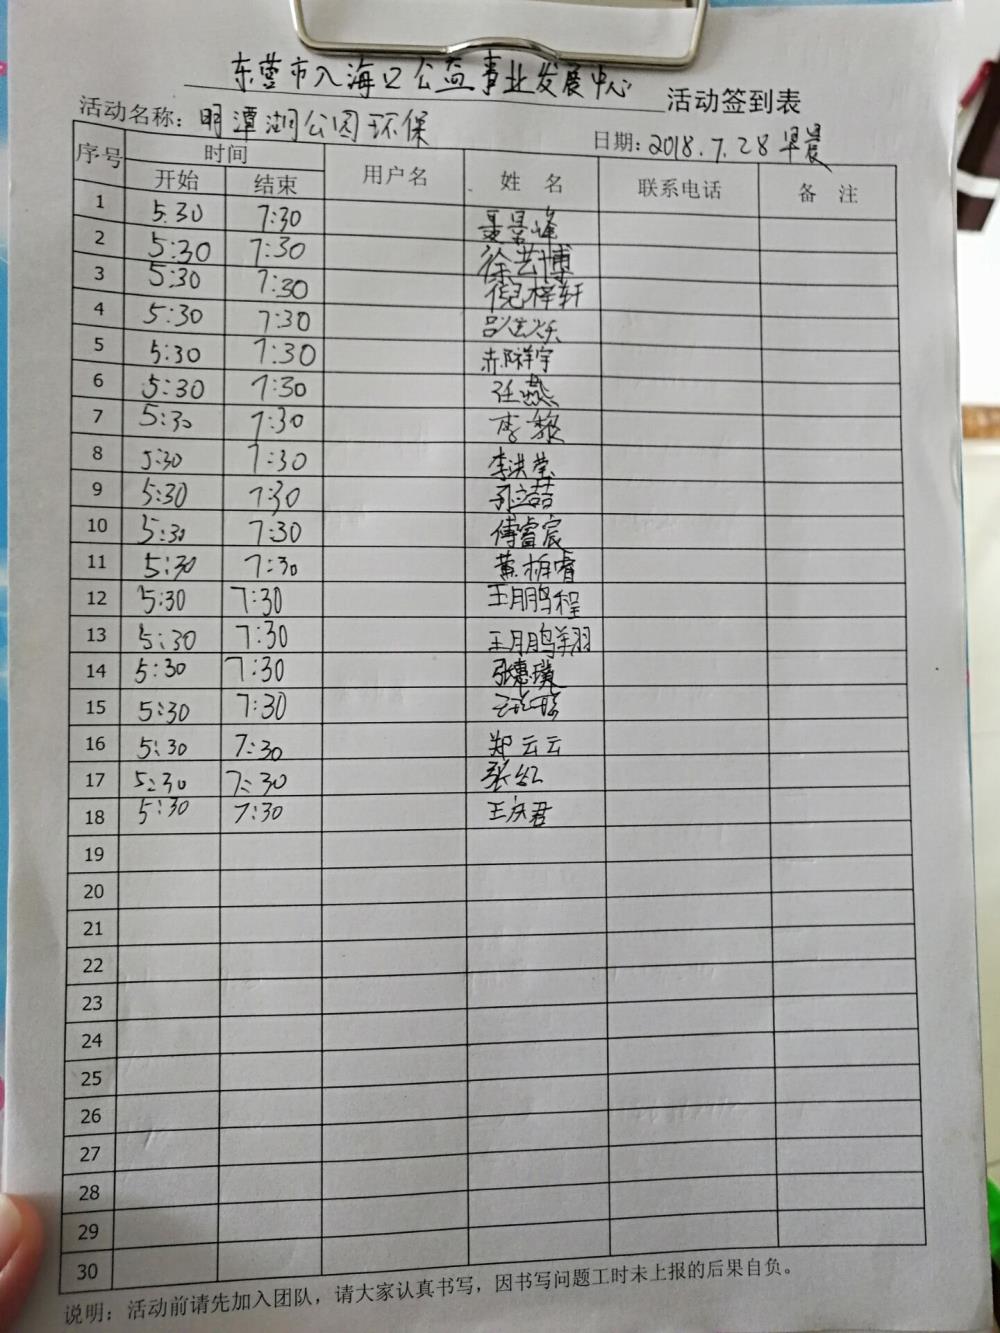 东营市入海口公益事业发展中心 活动签到表
活动名称：明潭湖公园环保 日期：2018.7.28 早晨
序号 时间 用户名 姓 名 联系电话 备 注
开始 结束
1 5:30 7:30 聂景峰
2 5:30 7:30 徐芸博
3 5:30 7:30 倪梓轩
4 5:30 7:30
5 5:30 7:30 祥宇
6 5:30 7:30 任燕
7 5:30 7:30 李黎
8 5:30 7:30 李洪莹
9 5:30 7:30
10 5:30 7:30 傅睿宸
11 5:30 7:30 黄柏睿
12 5:30 7:30 王鹏程
13 5:30 7:30 王鹏翔
14 5:30 7:30 张惠璞
15 5:30 7:30
16 5:30 7:30 郑云云
17 5:30 7:30 张红
18 5:30 7:30 王庆君
19
20
21
22
23
24
25
26
27
28
29
30
说明：活动前请先加入团队，请大家认真书写，因书写问题工时未上报的后果自负。